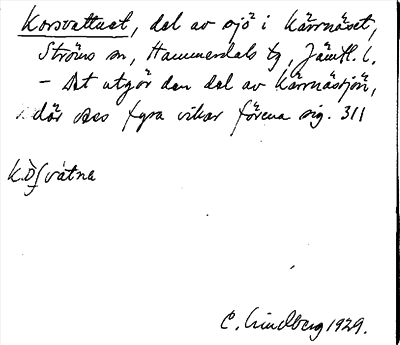 Korsvattnet, del av sjö i Kärrnäset,
Ströms sn, Hammerdals tg, Jämtl. l.
- Det utgör den del av Kärrnässjön,
där dess fyra vikar förena sig. 311
vátna
C. Lindberg 1929.